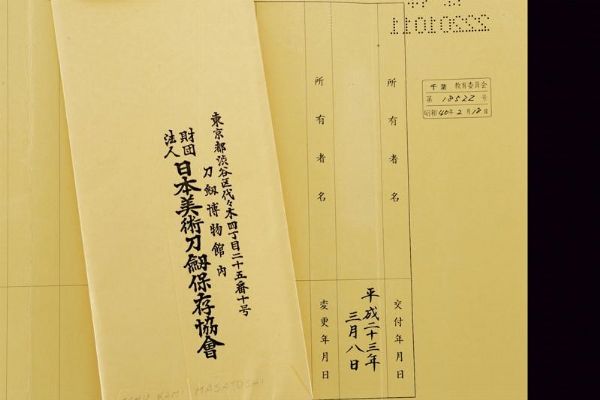 東京都渋谷区代々木四丁目二十五番十号
刀剱博物館内
財団
法人
日本美術刀剱保存協會
KAMI MASATOSHI
千葉 教育委員会
第 18522 号
昭和40年2月18日
所有者名
交付年月日
平成二十三年
三月八日
所有者名
変更年月日